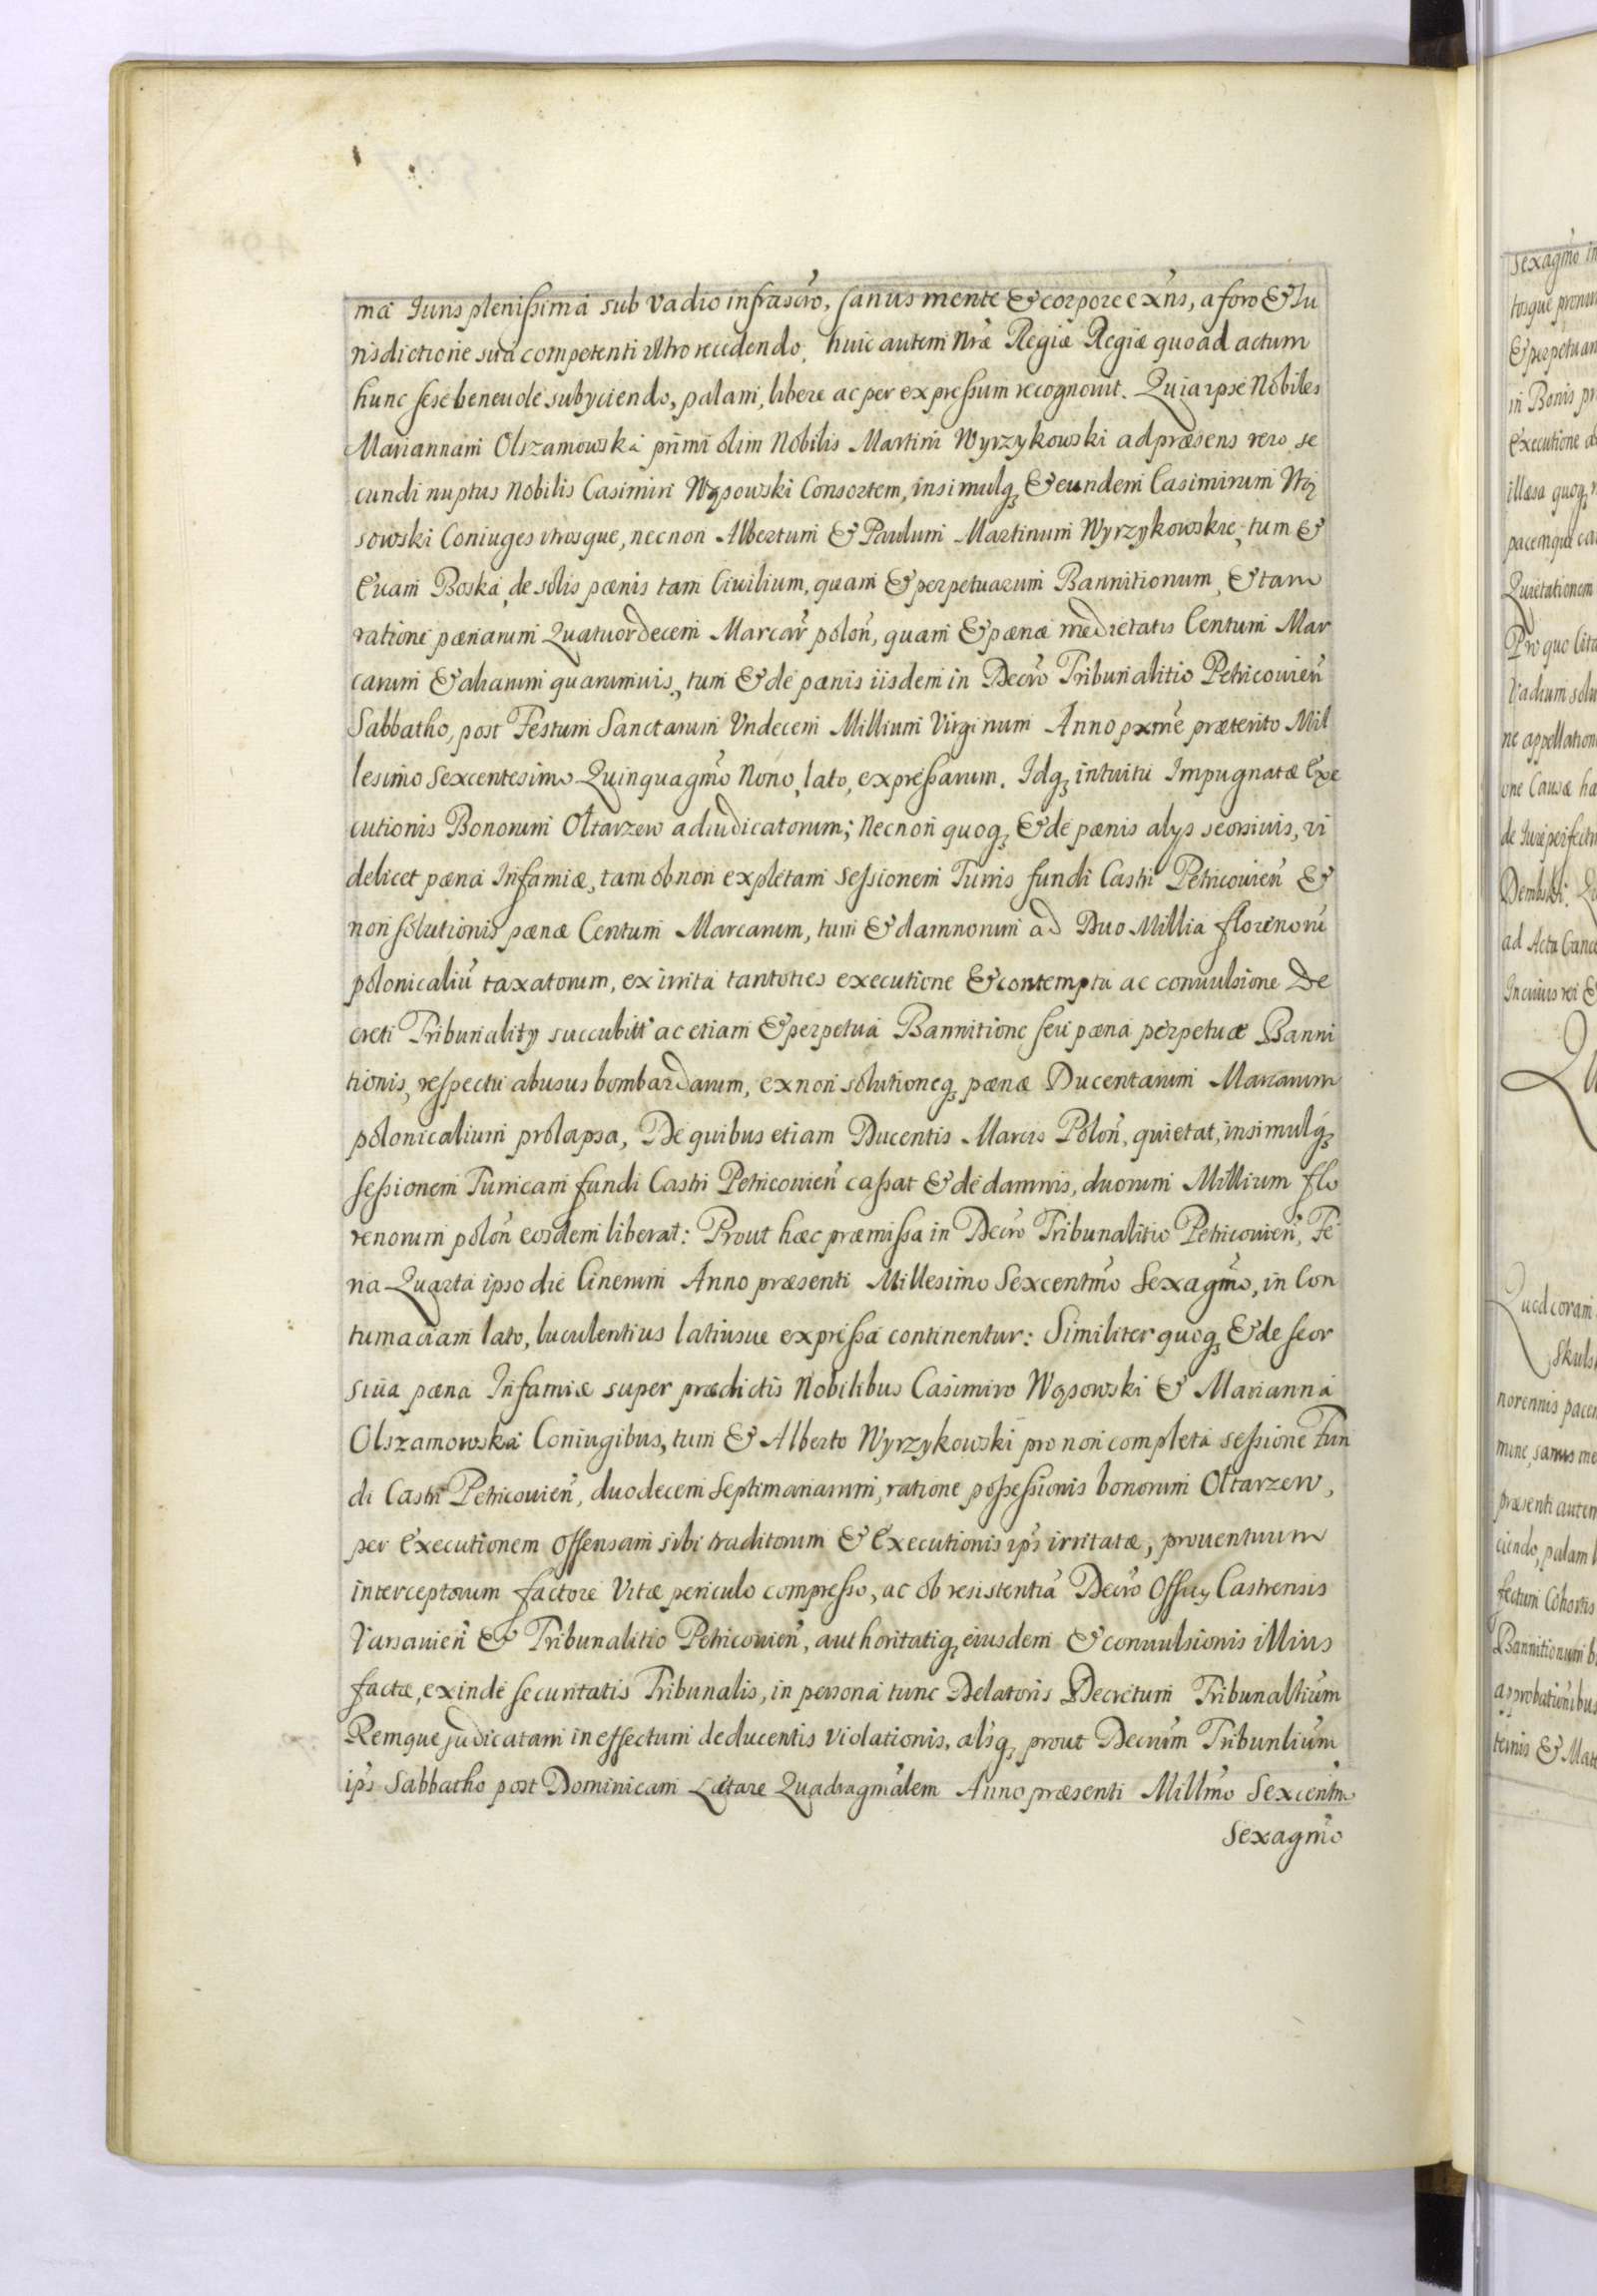 ma Iuris plenissima sub vadio infrascr̃o, sanus mente & corpore ex̃ns, a foro & Iu
risdictione sua competenti vltro recedendo, huic autem Nr̃æ Regiæ Regiæ quoad actum
hunc sese beneuole subyciendo, palam, libere ac per expressum recognouit. Quia ipse Nobiles
Mariannam Olszamowska primi olim Nobilis Martini Wyrzykowski ad præsens vero se
cundi nuptus Nobilis Casimiri Wąsowski Consortem, insimulq; & eundem Casimirum Wą
sowski Coniuges vtrosque, necnon Albertum & Paulum Martinum Wyrzykowskie, tum &
Euam Boska, de solis pænis tam Ciuilium, quam & perpetuarum Bannitionum, & tam
ratione pænarum Quatuordecem Marcar̃ polon̄, quam & pænæ medietatis Centum Mar
carum & aliarum quarumuis, tum & de pænis iisdem in Decr̃o Tribunalitio Petricouien̄
Sabbatho, post Festum Sanctarum Vndecem Millium Virginum Anno pxm̃e præterito Mil
lesimo Sexcentesimo Quinquagm̃o Nono, lato, expressarum. Idq; intuitu Impugnatæ Exe
cutionis Bonorum Ołtarzew adiudicatorum; Necnon quoq; & de pænis alys seorsiuis, vi
delicet pæna Infamiæ, tam ob non expletam Sessionem Turris fundi Castri Petricouien̄ &
non solutionis pænæ Centum Marcarum, tum & damnorum ad Duo Millia florenorū
polonicaliū taxatorum, ex irrita tantoties executione & contemptu ac conuulsione De
creti Tribunality succubuit ac etiam & perpetua Bannitione seu pæna perpetuæ Banni
tionis, respectu abusus bombardarum, ex non solutioneq; pænæ Ducentarum Marcarum
polonicalium prolapsa, De quibus etiam Ducentis Marcis Polon̄, quietat, insimulq;
sessionem Turricam fundi Castri Petricouien̄ cassat & de damnis, duorum Millium flo
renorum polon̄ eosdem liberat: Prout hæc præmissa in Decr̃o Tribunalitio Petricouien̄, Fe
ria Quarta ipso die Cinerum Anno præsenti Millesimo Sexcentm̃o Sexagm̃o, in Con
tumaciam lato, luculentius latiusue expressa continentur: Similiter quoq; & de seor
siua pæna Infamiæ super prædictis Nobilibus Casimiro Wąsowski & Marianna
Olszamowska Coniugibus, tum & Alberto Wyrzykowski pro non completa sessione Fun
di Castri Petricouien̄, duodecem Septimanarum, ratione possessionis bonorum Ołtarzew,
per Executionem Offensam sibi traditorum & Executionis ip̃s irritatæ, prouentuum
interceptorum factore Vitæ periculo compresso, ac ob resistentiā Decr̃o Officy Castrensis
Varsauien̄ & Tribunalitio Petricouien̄, authoritatiq; eiusdem & conuulsionis illius
factæ, exinde securitatis Tribunalis, in persona tunc Delatoris Decretum Tribunaltiūm
Remque judicatam in effectum deducentis violationis, alsq; prout Decrūm Tribunliūm
ip̃s Sabbatho post Dominicam Lætare Quadragm̃alem Anno præsenti Millm̃o Sexcentm̃o
Sexagm̃o
Sexagm̃o
tosque
& perpetuam
in Bonis
Executione
illæsa quoq;
pacemque
Quietationem
Pro quo
Vadium
ne appellation
one Causæ
de Iure
Dembski.
ad Acta
In cuius rei &
Quod coram
norennis
mine, sanus
præsenti autem
ciendo, palam
fectum Cohortis
Bannitionum
approbationibus
ternis &